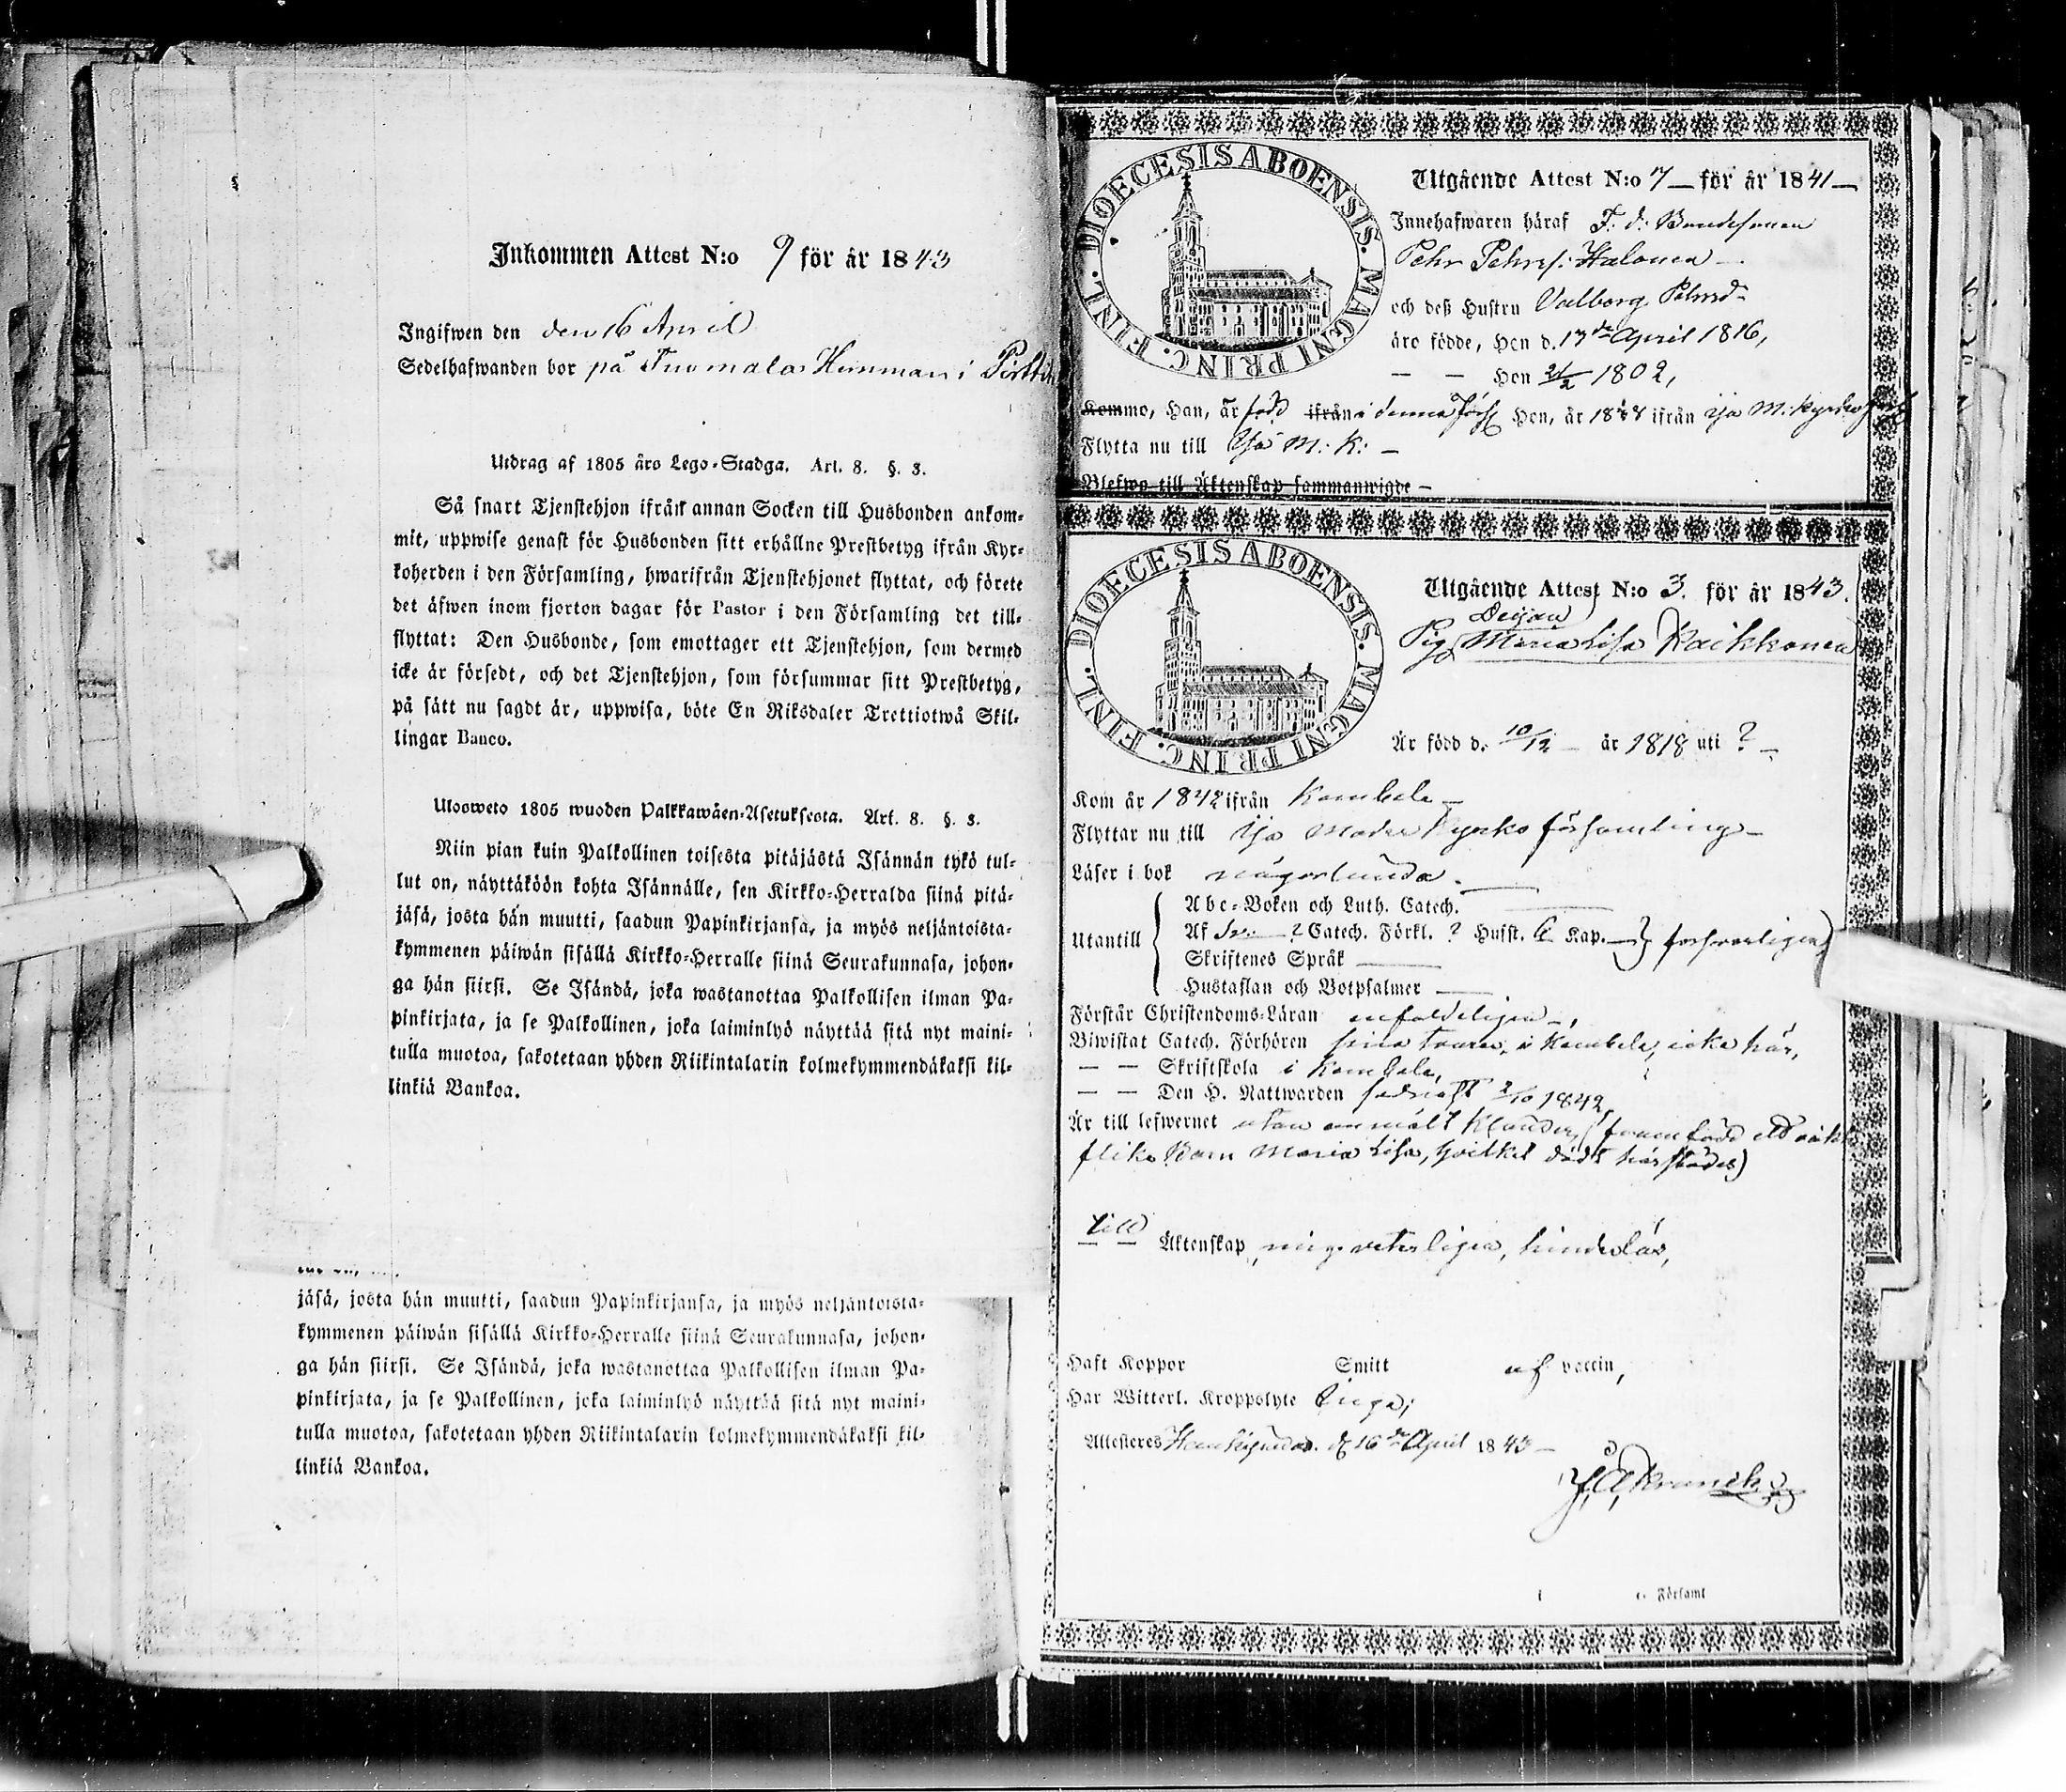 Inkommen Attest N:o 9 för år 1843
Ingifwen den den 16 April
Sedelhafwanden bor på Tuomala Hemman i
Utdrag af 1805 års Lego-Stadga. Art. 8. §. 3.
Så snart Tjenstehjon ifrån annan Socken till Husbonden ankom-
mit, uppwise genast för Husbonden sitt erhållne Prestbetyg ifrån Kyr-
koherden i den Församling, hwarifrån Tjenstehjonet flyttat, och förete
det äfwen inom fjorton dagar för Pastor i den Församling det till-
flyttat: Den Husbonde, som emottager ett Tjenstehjon, som dermed
icke är försedt, och det Tjenstehjon, som försummar sitt Prestbetyg,
på sätt nu sagdt är, uppwisa, böte En Riksdaler Trettiotwå Skil-
lingar Banco.
Ulosweto 1805 wuoden Palkkawäen-Asetuksesta. Art. 8. §. 3.
Niin pian kuin Palkollinen toisesta pitäjästä Isännän tykö tul-
lut on, näyttäköön kohta Isännälle, sen Kirkko-Herralda siinä pitä-
jäsä, josta hän muutti, saadun Papinkirjansa, ja myös neljäntoista-
kymmenen päiwän sisällä Kirkko-Herralle siinä Seurakunnasa, johon-
ga hän siirsi. Se Isändä, joka wastanottaa Palkollisen ilman Pa-
pinkirjata, ja se Palkollinen, joka laiminlyö näyttää sitä nyt maini-
tulla muotoa, sakotetaan yhden Riikintalarin kolmekymmendäkaksi kil-
linkiä Bankoa.
jäsä, josta hän muutti, saadun Papinkirjansa, ja myös neljäntoista-
kymmenen päiwän sisällä Kirkko-Herralle siinä Seurakunnasa, johon-
ga hän siirsi. Se Isändä, joka wastanottaa Palkollisen ilman Pa-
pinkirjata, ja se Palkollinen, joka laiminlyö näyttää sitä nyt maini-
tulla muotoa, sakotetaan yhden Riikintalarin kolmekymmendäkaksi kil-
linkiä Bankoa.
DIOECESIS ABOENSIS. MAGNI PRINC. FINL.
Utgående Attest N:o 7 — för år 1841 —
Innehafwaren häraf F. d. Bondesonen
Pehr Pehrs: Halonen —
och deß Hustru Valborg Pehrsd:
äro födde, Han d. 17de April 1816,
— — Hon 21/2 1802,
Kommo, Han, är född ifrån i denna Förs: Hon, år 18 8 ifrån Ijo M: Kyrko
Flytta nu till Ijo M: K: —
Blefwo till Äktenskap sammanwigde —
DIOECESIS ABOENSIS. MAGNI PRINC. FINL.
Utgående Attest N:o 3. för år 1843.
Pig. Maria Lisa Kaikkonen
Är född d. 10/12 — år 1818 uti ? —
Kom år 1842 ifrån Kembele —
Flyttar nu till Ijo Moder Kyrko församling —
Läser i bok någorlunda.
Utantill
Abc-Boken och Luth. Catech.
Af Sv: — ? Catech. Förkl. ? Husst. 6 Kap. — försvarligen
Skriftenes Språk —
Hustaflan och Botpsalmer —
Förstår Christendoms-Läran enfaldeligen —,
Biwistat Catech. Förhören sina tourer, i Kembele, icke här,
— — Skriftskola i Kembele,
— — Den H. Nattwarden sednast 2/10 1842,
Är till lefwernet utan anmält klander, (framfödd ett oäkt
flicko Barn Maria Lisa, hvilket dödt härstädes)
till Äktenskap, mig veterligen, hinderlös,
Haft Koppor Smitt af vaccin,
Har Witterl. Kroppslyte Inga;
Attesteras d. 16de April 1843 —